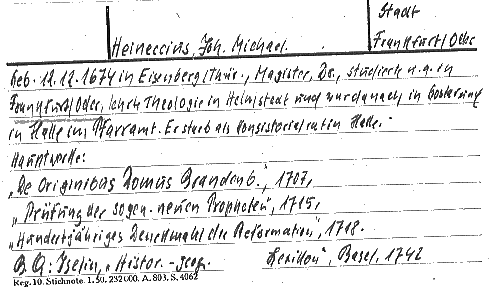 Stadt
Heineccius, Joh. Michael.
Frankfurt/Oder
Geb. 12.12.1674 in Eisenberg/Thür., Magister, Dr., studierte u.a. in
Frankfurt/Oder, lehrte Theologie in Helmstedt und war danach in Goslar und
in Halle im Pfarramt. Er starb als Konsistorialrat in Halle.-
Hauptwerke:
„De Originibus Domus Brandenb.", 1707,
„Prüfung der sogen. neuen Propheten", 1715,
„Hundertjähriges Denckmahl der Reformation", 1718.
B.Q.: Iselin, „Histor.-geogr. Lexikon", Basel, 1742
Reg. 10. Stichnote. 1. 50. 232000. A. 803. S. 4062